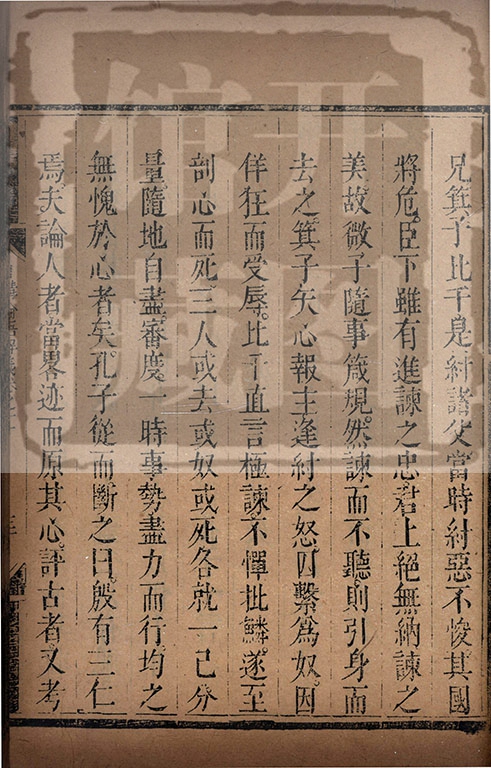 兄箕子比干是紂諸父當時紂惡不悛其國
將危臣下雖有進諫之忠君上絕無納諫之
美故微子隨事箴規然諫而不聽則引身而
去之箕子矢心報主逢紂之怒囚繫爲奴因
佯狂而受辱比干直言極諫不憚批鱗遂至
剖心而死三人或去或奴或死各就一己分
量隨地自盡審度一時事勢盡力而行均之
無愧於心者矣孔子從而斷之曰殷有三仁
焉夫論人者當畧迹而原其心評古者又考